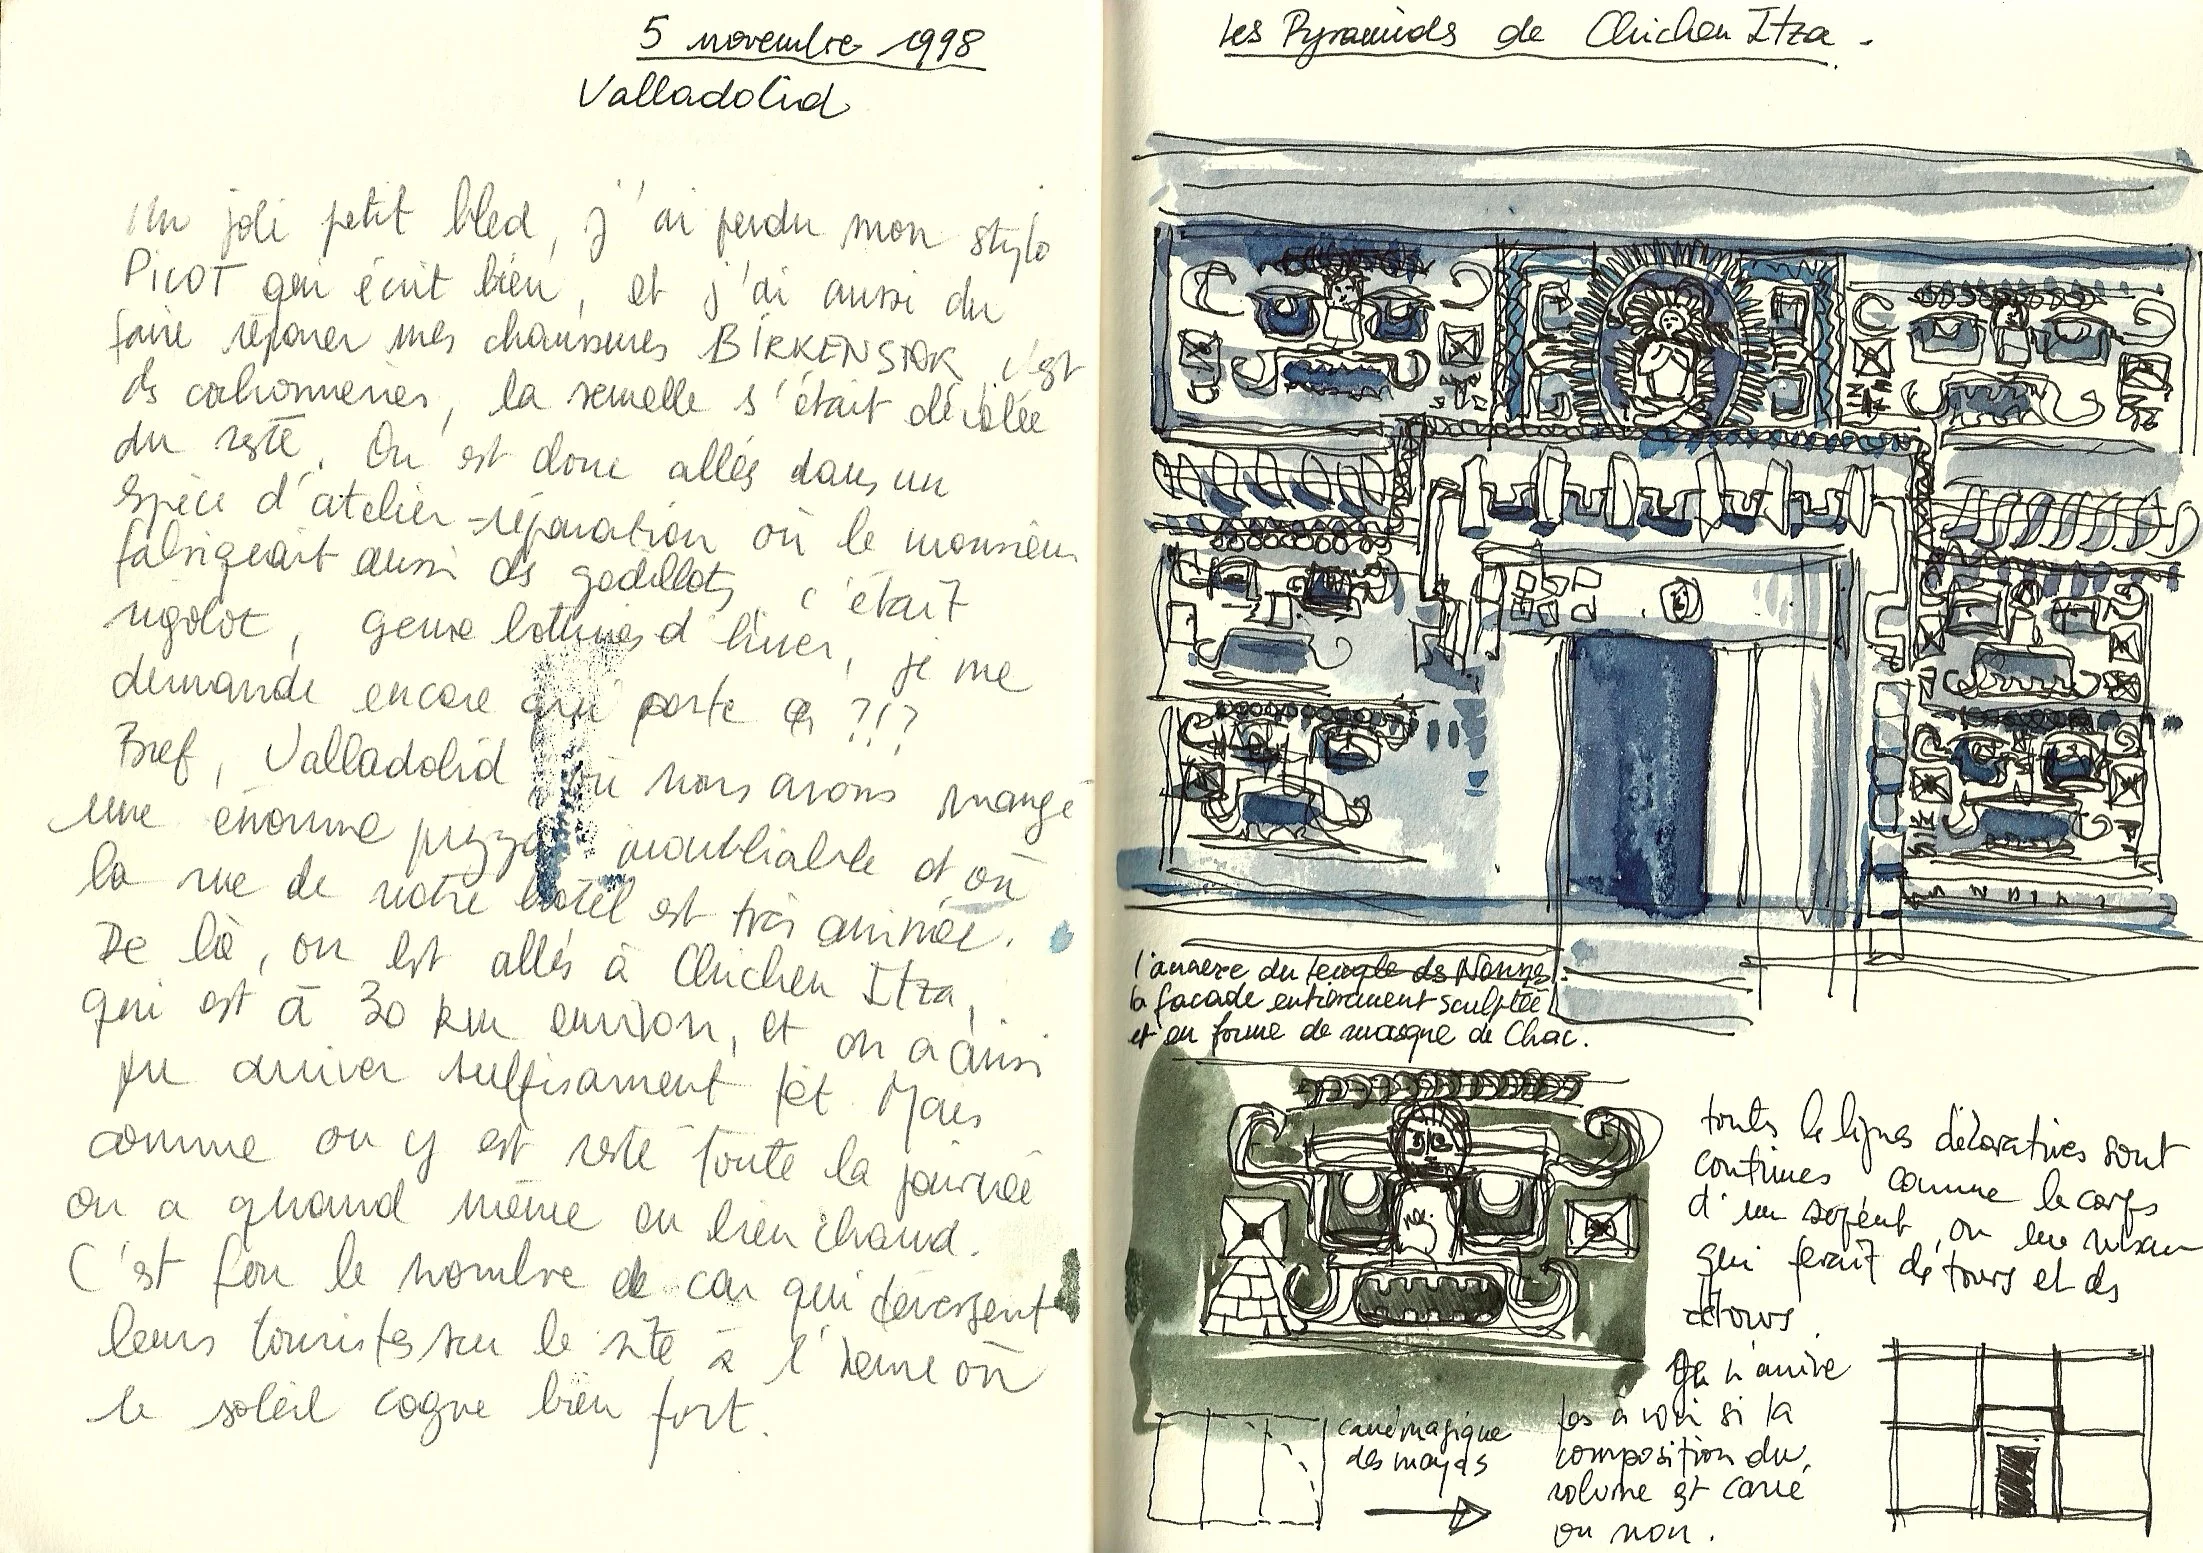 5 novembre 1998
Valladolid
Un joli petit bled, j'ai perdu mon stylo
PICOT qui écrit bien, et j'ai aussi du
faire réparer mes chaussures BIRKENSTOK, c'est
ds cochonneries, la semelle s'était décollée
du reste. On est donc allés dans un
spèce d'atelier-réparation où le monsieur
fabriqeait aussi ds godillots, c'était
rigolot, genre bottines d'hiver, je me
demande encore qui porte ça ?!?
Bref, Valladolid où nous avons mangé
une énorme pizza inoubliable et où
la rue de notre hôtel est très animée.
De là, on est allés à Chichen Itza,
qui est à 30 km environ, et on a ainsi
pu arriver suffisament tôt. Mais
comme on y est resté toute la journée
on a quand même eu bien chaud.
C'est fou le nombre de car qui déversent
leurs touristes sur le site à l'heure où
le soleil cogne bien fort.
Les Pyramids de Chichen Itza.
l'annexe du temple des Nonnes.
la facade entièrement sculptée
et en forme de masque de Chac.
touts le lignes décoratives sont
continues comme le corps
d'un serpent, ou un
qui ferait de tours et des
retours.
carré magique
des mayas
Je n'arrive
pas à voir si la
composition du
volume est carré
ou non.